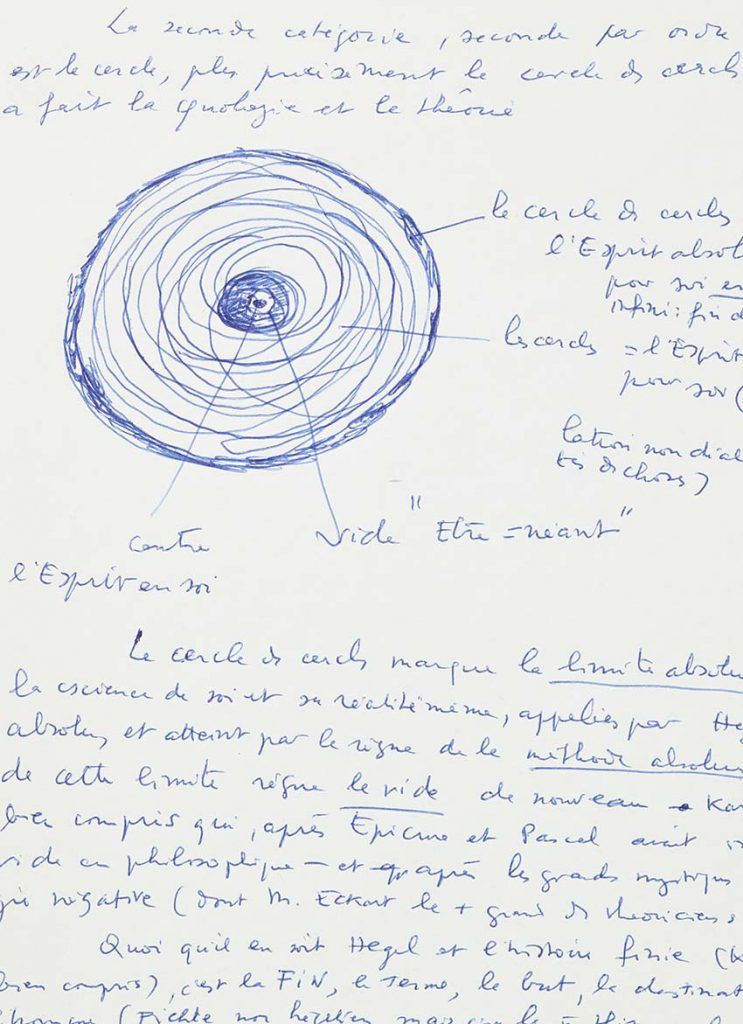 La seconde catégorie, seconde par ordre
est le cercle, plus précisément le cercle ds cercls
a fait la gnoologie et le théorie
le cercle ds cercles
l'Esprit absol
pour soi en
infini : fin d
les cercls = l'Esprit
pour soi (
lation non dial
tés ds choses)
centre
vide "Etre = néant"
l'Esprit en soi
Le cercle ds cercls marque la limite absolu
la cscience de soi et sa réalité même, appelées par He
absolu, et atteint par le règne de la méthode absolu
de cette limite règne le vide de nouveau Kan
bien compris qui, après Epicure et Pascal avait
vide en philosophique — et après les grands mystiques
gie négative (dont M. Eckart le + grand ds théoriciens
Quoi qu'il en soit Hegel et l'histoire finie (b
bien compris), c'est la FIN, le terme, le but, la destinat
l'homme (Fichte non hégélien mais